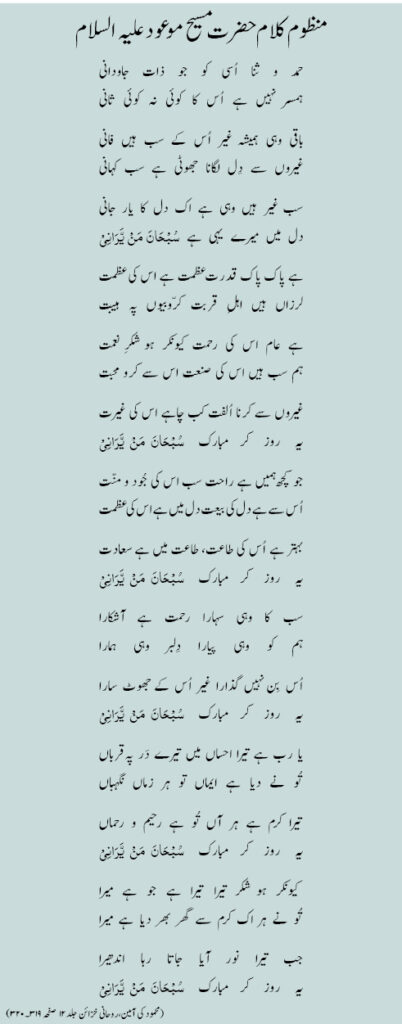 منظوم کلام حضرت مسیح موعود علیہ السلام
حمد و ثنا اُسی کو جو ذات جاودانی
ہمسر نہیں ہے اُس کا کوئی نہ کوئی ثانی
باقی وہی ہمیشہ غیر اُس کے سب ہیں فانی
غیروں سے دِل لگانا جھوٹی ہے سب کہانی
سب غیر ہیں وہی ہے اک دل کا یار جانی
دل میں میرے یہی ہے سُبْحَانَ مَنْ یَّرَانِیْ
ہے پاک پاک قدرت عظمت ہے اس کی عظمت
لرزاں ہیں اہلِ قربت کرّوبیوں پہ ہیبت
ہے عام اس کی رحمت کیونکر ہو شکرِ نعمت
ہم سب ہیں اس کی صنعت اس سے کرو محبت
غیروں سے کرنا اُلفت کب چاہے اس کی غیرت
یہ روز کر مبارک سُبْحَانَ مَنْ یَّرَانِیْ
جو کچھ ہمیں ہے راحت سب اس کی جُود و منّت
اُس سے ہے دل کی بیعت دل میں ہے اس کی عظمت
بہتر ہے اُس کی طاعت، طاعت میں ہے سعادت
یہ روز کر مبارک سُبْحَانَ مَنْ یَّرَانِیْ
سب کا وہی سہارا رحمت ہے آشکارا
ہم کو وہی پیارا دِلبر وہی ہمارا
اُس بِن نہیں گذارا غیر اُس کے جھوٹ سارا
یہ روز کر مبارک سُبْحَانَ مَنْ یَّرَانِیْ
یا رب ہے تیرا احساں میں تیرے دَر پہ قرباں
تُو نے دیا ہے ایماں تو ہر زماں نگہباں
تیرا کرم ہے ہر آں تُو ہے رحیم و رحماں
یہ روز کر مبارک سُبْحَانَ مَنْ یَّرَانِیْ
کیونکر ہو شکر تیرا تیرا ہے جو ہے میرا
تُو نے ہر اک کرم سے گھر بھر دیا ہے میرا
جب تیرا نور آیا جاتا رہا اندھیرا
یہ روز کر مبارک سُبْحَانَ مَنْ یَّرَانِیْ
(محمود کی آمین، روحانی خزائن جلد ۱۲ صفحہ ۳۱۹۔۳۲۰)